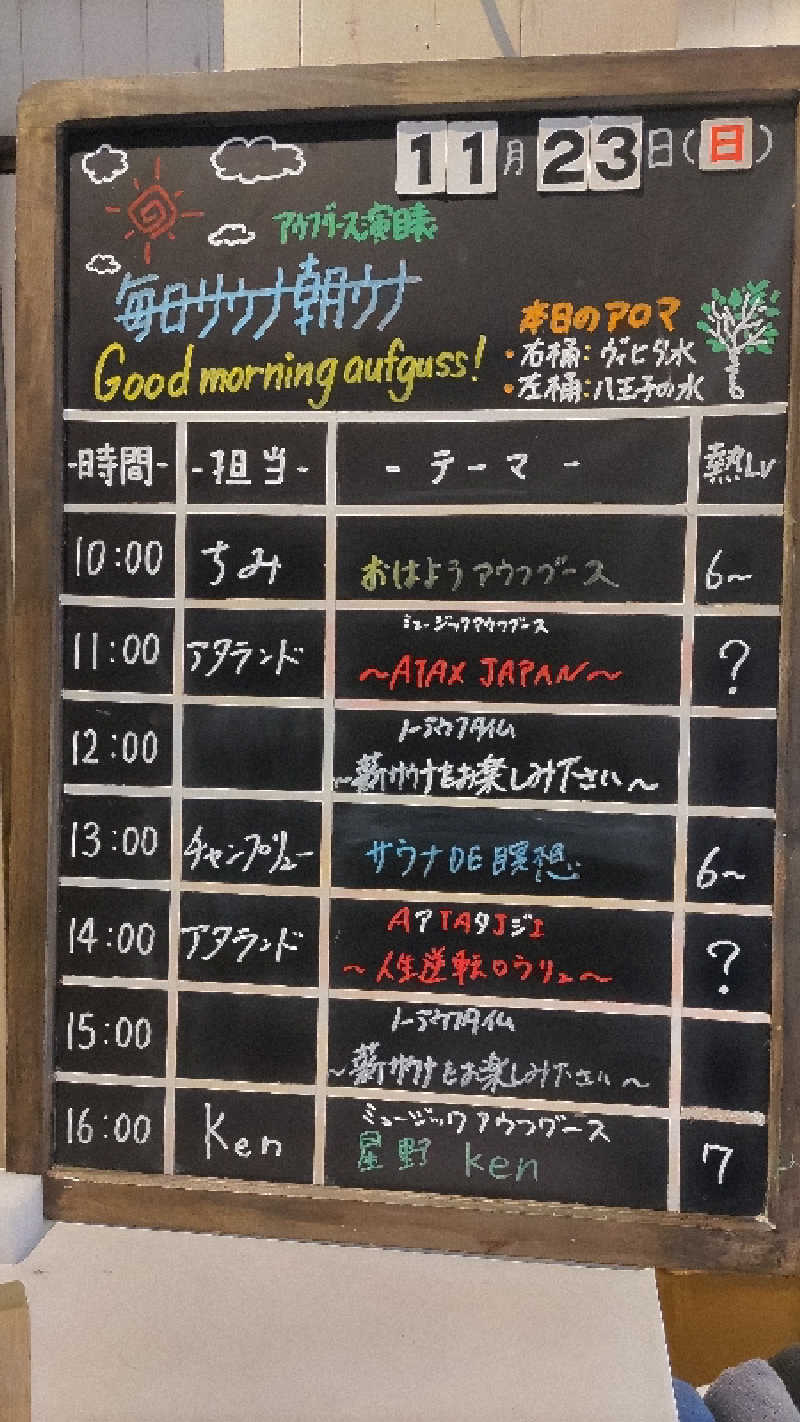 11月23日(日)
アウフグース演目表
毎日サウナ朝ウナ
Good morning aufguss!
本日のアロマ
・右桶:ヴィヒタ水
・左桶:八王子の水
-時間- -担当- -テーマ- 熱Lv
10:00 ちみ おはようアウフグース 6~
11:00 アタランド ミュージックアウフグース ?
~ATAX JAPAN~
12:00
~薪サウナをお楽しみ下さい~
13:00 チャンプリュー サウナDE瞑想 6~
14:00 アタランド AアTAタJジI ?
~人生逆転ロウリュ~
15:00
~薪サウナをお楽しみ下さい~
16:00 Ken ミュージックアウフグース 7
星野 ken